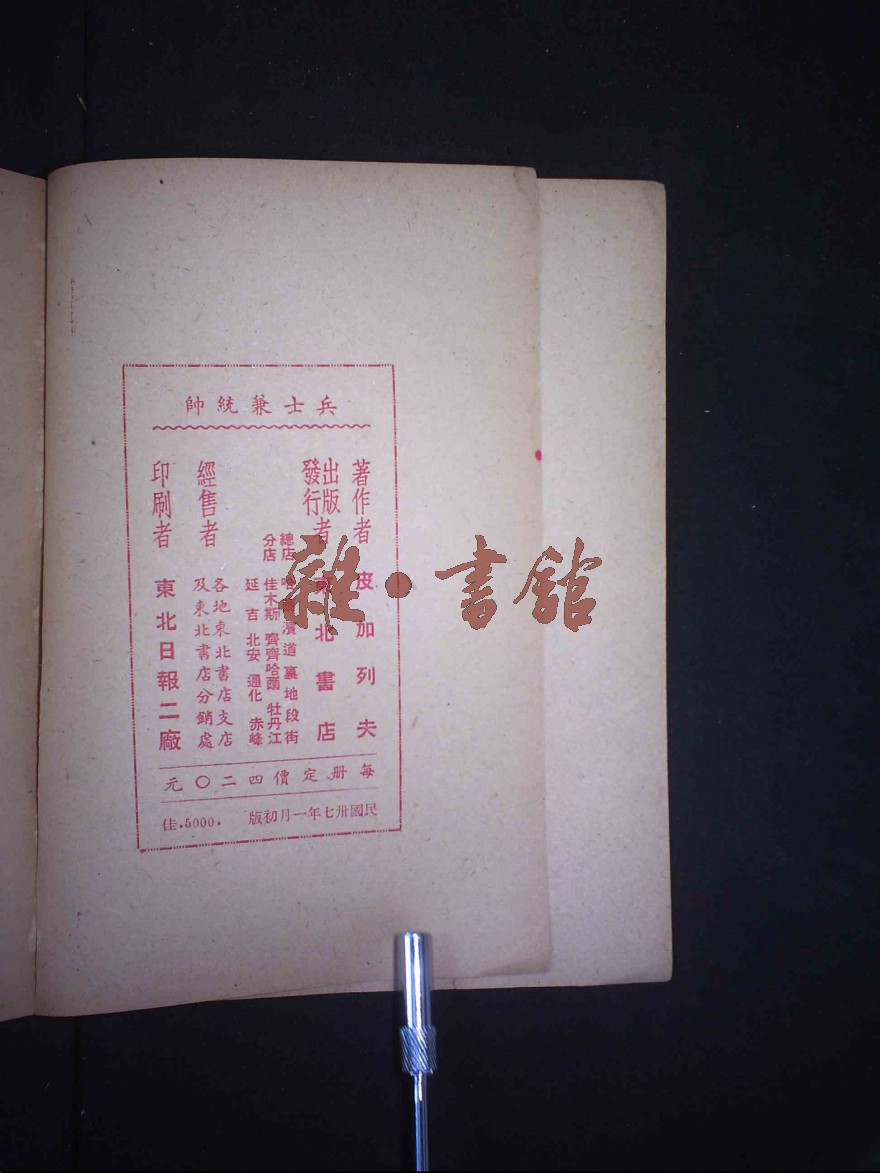 兵士兼統帥
著作者 皮加列夫
出版者
發行者 東北書店
總店 哈爾濱道裏地段街
分店 佳木斯 齊齊哈爾 牡丹江
延吉 北安 通化 赤峰
經售者 各地東北書店支店
及東北書店分銷處
印刷者 東北日報二廠
每册定價四二〇元
民國卅七年一月初版 .5000.佳
雜·書館